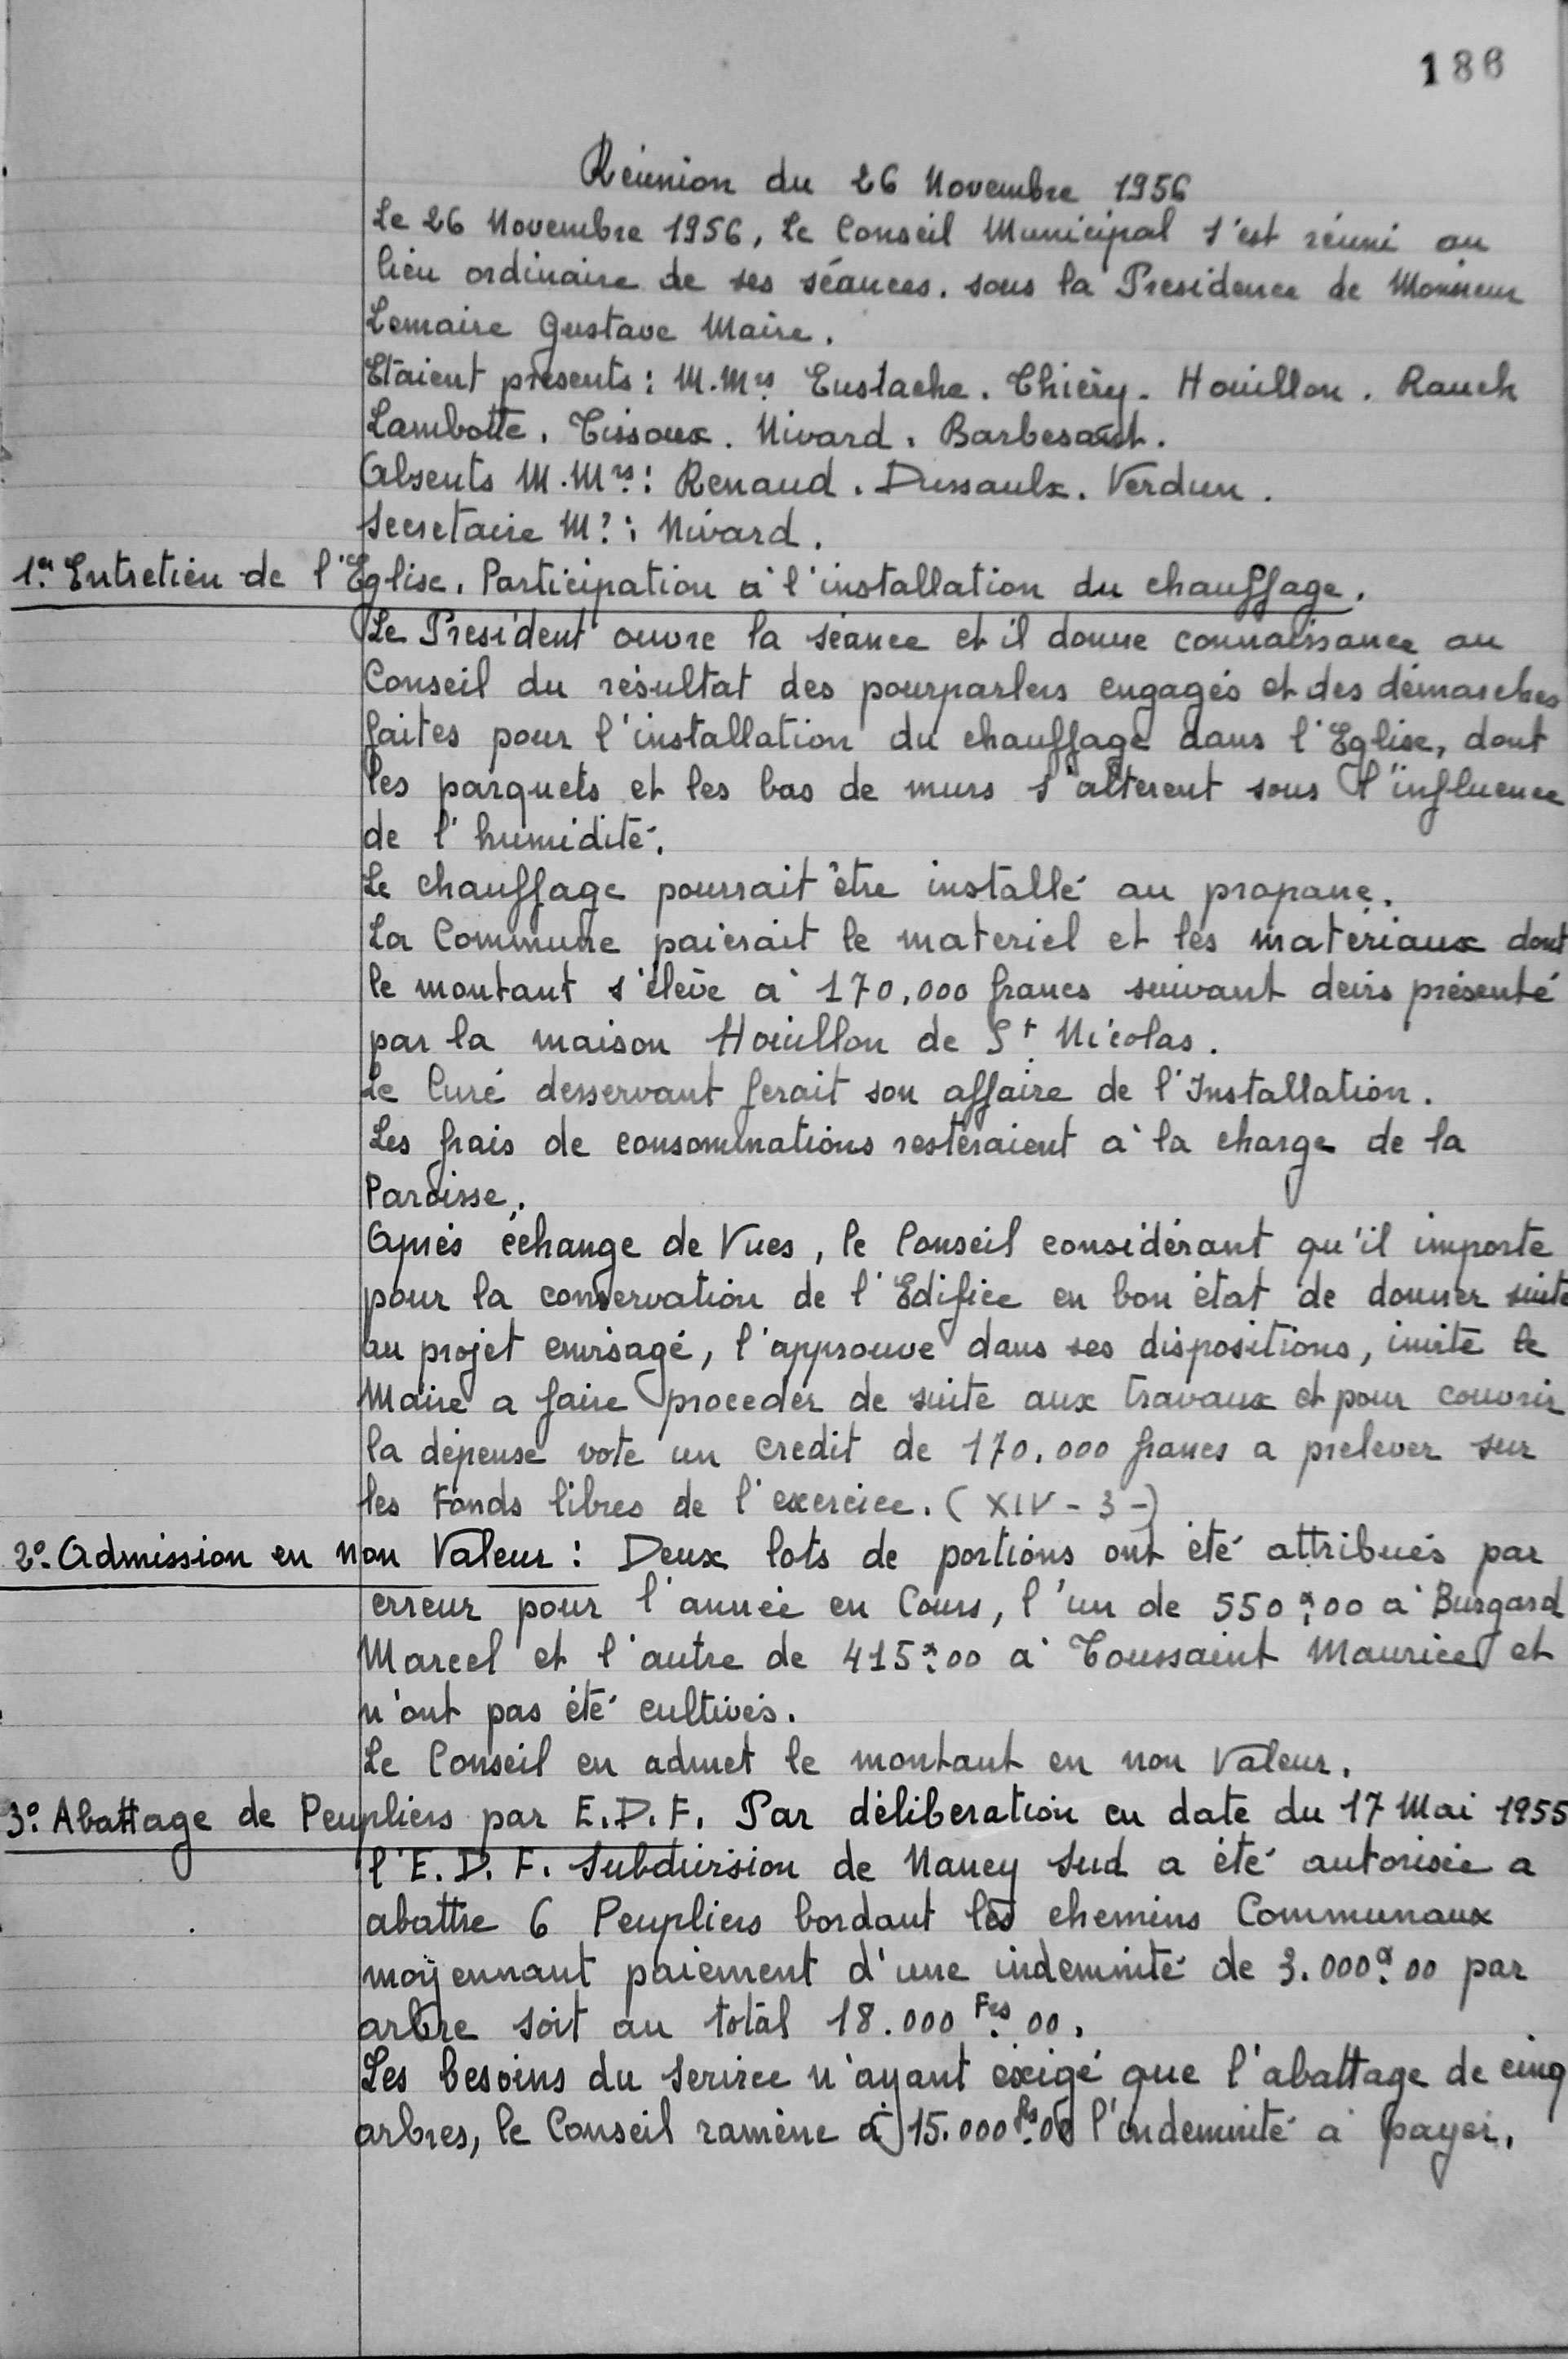 186
Réunion du 26 Novembre 1956
Le 26 Novembre 1956, le Conseil Municipal s'est réuni au
lieu ordinaire de ses séances. sous la Presidence de Monsieur
Lemaire Gustave Maire.
Etaient présents : M.Mrs Eustache. Thiéry. Houillon. Rauch
Lambotte. Tissoux. Nivard. Barbesant.
Absents M.Mrs : Renaud. Dussaulx. Verdun.
Secretaire Mr : Nivard.
1er Entretien de l'Eglise. Participation à l'installation du chauffage.
Le President ouvre la séance et il donne connaissance au
Conseil du résultat des pourparlers engagés et des démarches
faites pour l'installation du chauffage dans l'Eglise, dont
les parquets et les bas de murs s'altèrent sous l'influence
de l'humidité.
Le chauffage pourrait être installé au propane.
La Commune paierait le materiel et les matériaux dont
le montant s'élève à 170,000 francs suivant devis présenté
par la maison Houillon de St Nicolas.
Le Curé desservant ferait son affaire de l'Installation.
Les frais de consommations resteraient à la charge de la
Paroisse.
Après échange de Vues, le Conseil considérant qu'il importe
pour la conservation de l'Edifice en bon état de donner suite
au projet envisagé, l'approuve dans ses dispositions, invite le
Maire a faire proceder de suite aux travaux et pour couvrir
la dépense vote un credit de 170.000 francs a prelever sur
les Fonds libres de l'exercice. (XIV - 3 -)
2o. Admission en non Valeur : Deux lots de portions ont été attribués par
erreur pour l'année en Cours, l'un de 550 00 à Burgard
Marcel et l'autre de 415 00 à Toussaint Maurice et
n'ont pas été cultivés.
Le Conseil en admet le montant en non Valeur.
3o. Abattage de Peupliers par E.D.F. Par déliberation en date du 17 Mai 1955
l'E.D.F. Subdivision de Nancy Sud a été autorisée a
abattre 6 Peupliers bordant les chemins Communaux
moyennant paiement d'une indemnité de 3.000 00 par
arbre soit au total 18.000 Frs 00.
Les besoins du service n'ayant exigé que l'abattage de cinq
arbres, le Conseil ramène à 15.000 frs 00 l'indemnité à payer.